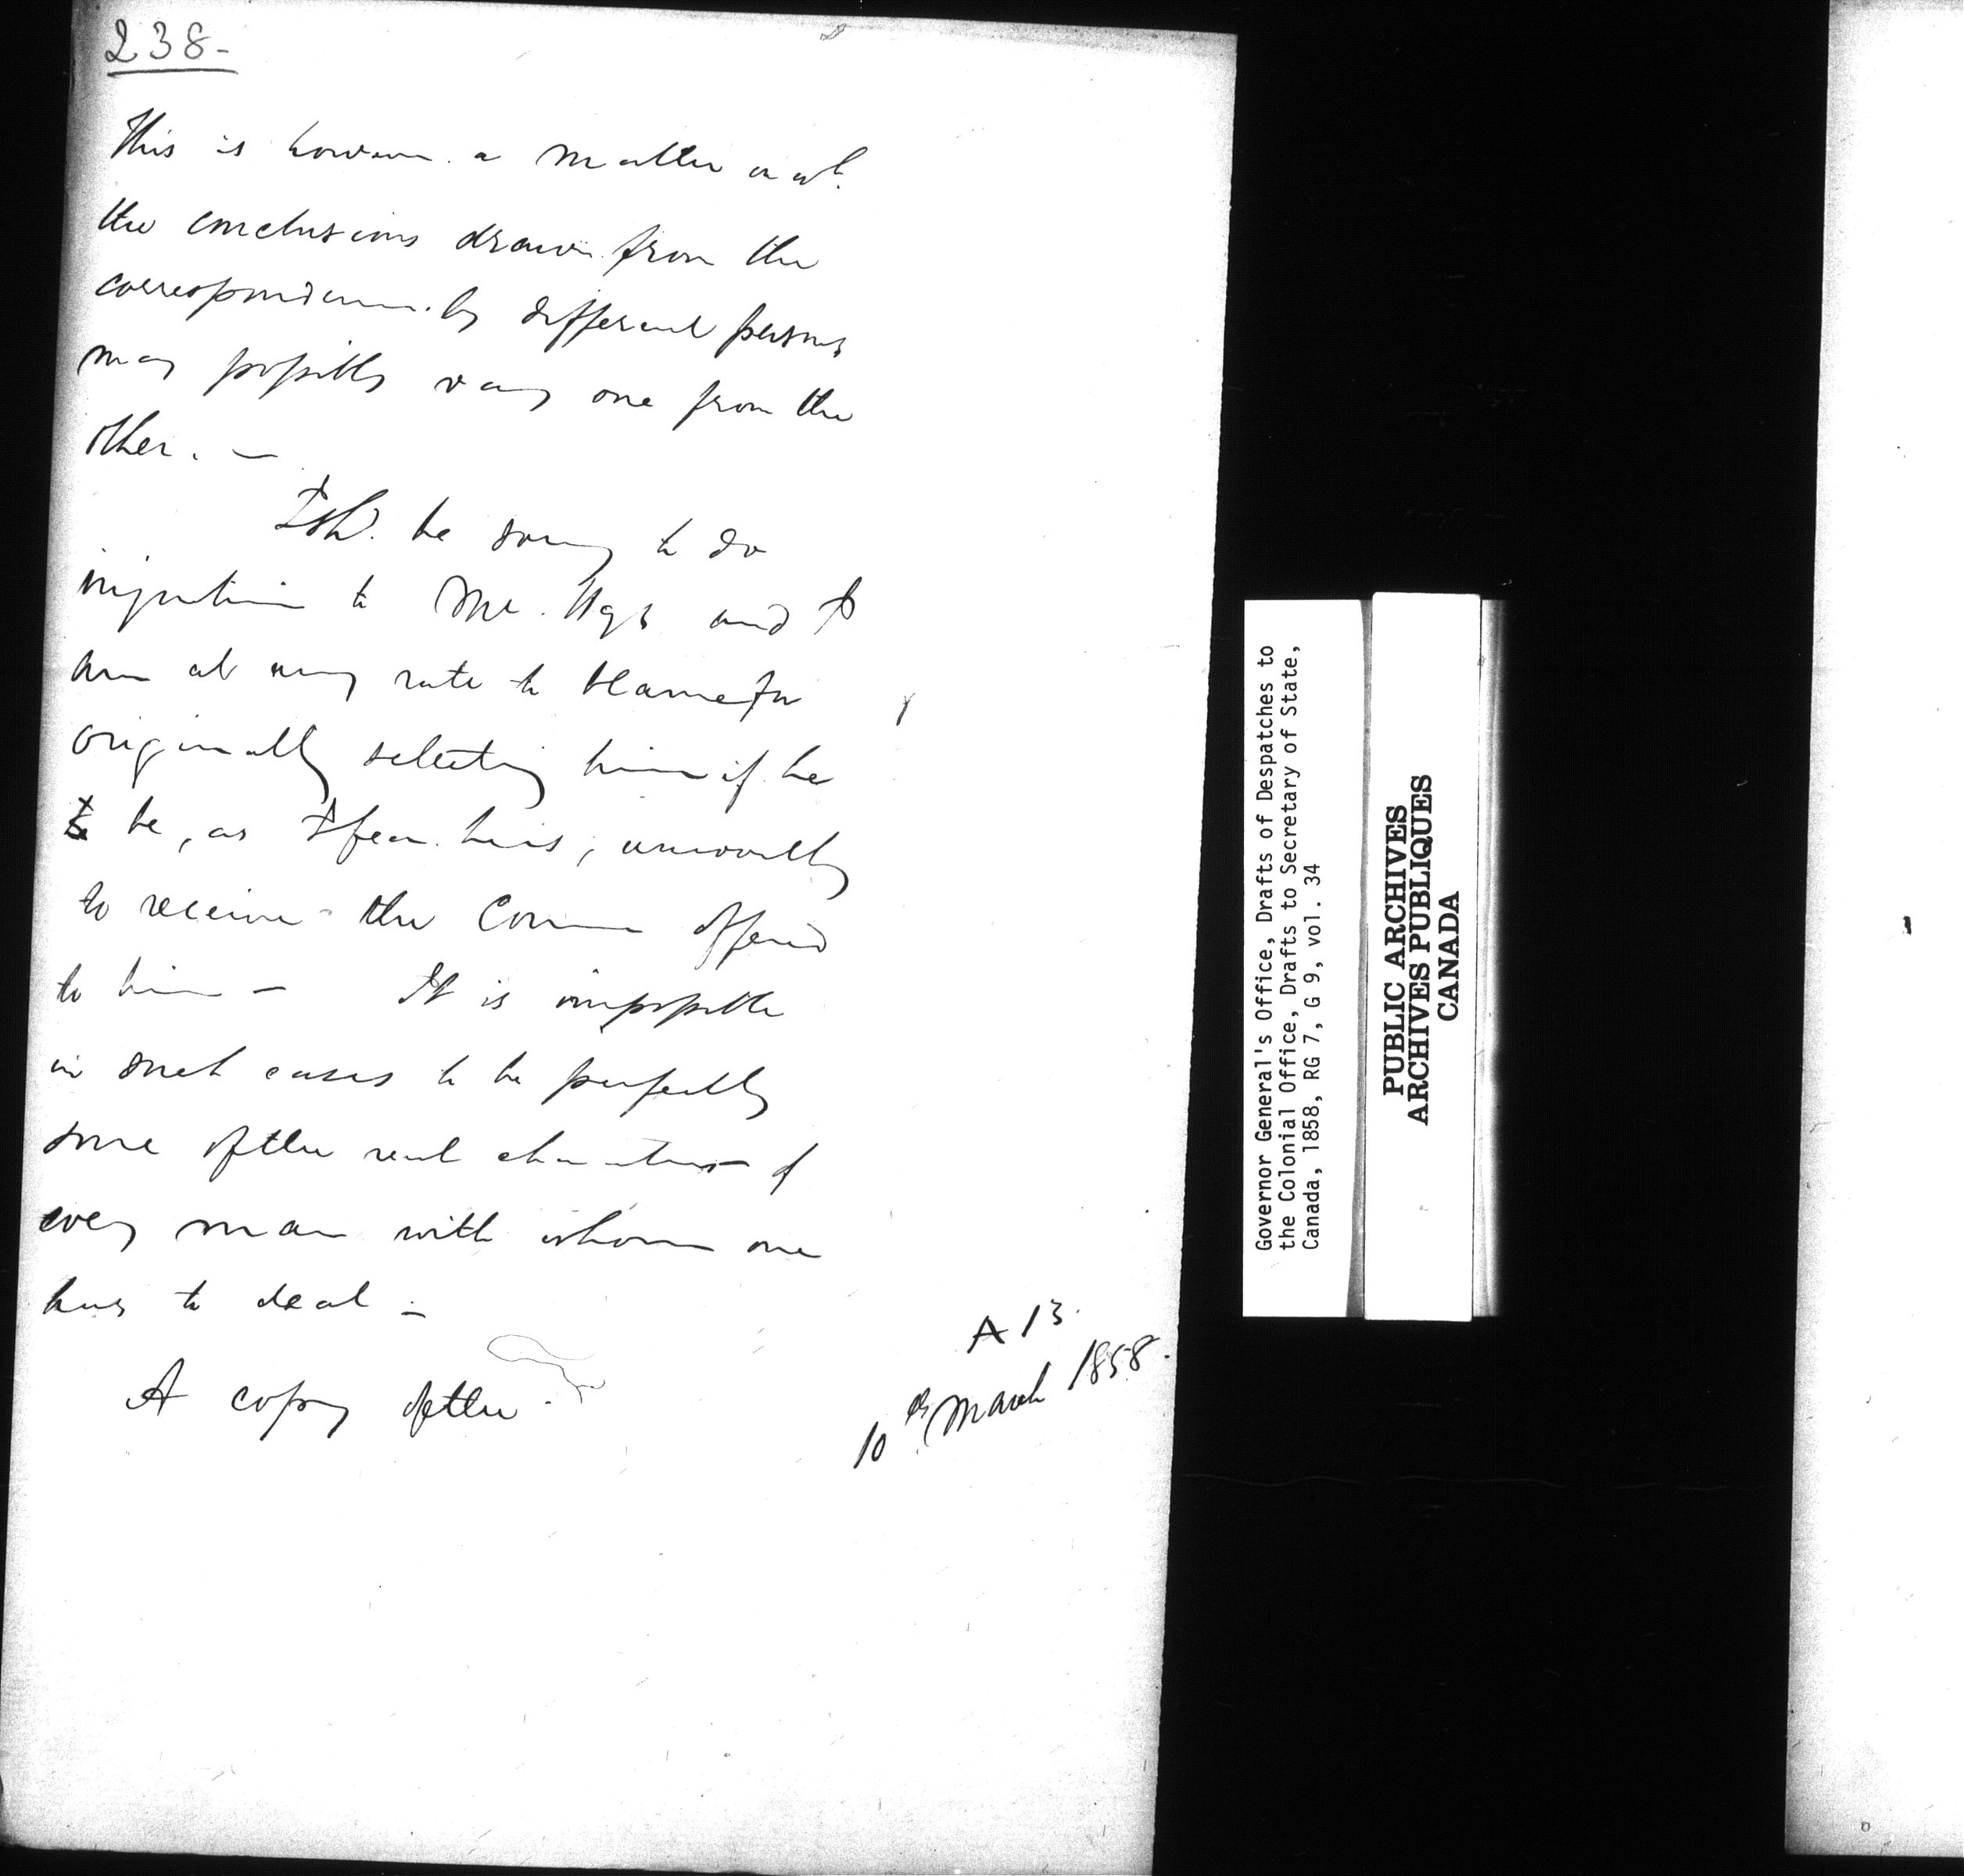 238-
This is however a matter on wh.
the conclusions drawn from the
correspondence by different persons
may possibly vary one from the
other. -
I shd. be sorry to do
injustice to Mr. and I
am at any rate to blame for
originally selecting him if he
be, as I fear he is, unworthy
to receive the Comn offered
to him - It is impossible
in such cases to be perfectly
sure of the real character of
every man with whom one
has to deal -
A copy of the
A 13.
10th March 1858.
Governor General's Office, Drafts of Despatches to
the Colonial Office, Drafts to Secretary of State,
Canada, 1858, RG 7, G 9, vol. 34
PUBLIC ARCHIVES
ARCHIVES PUBLIQUES
CANADA